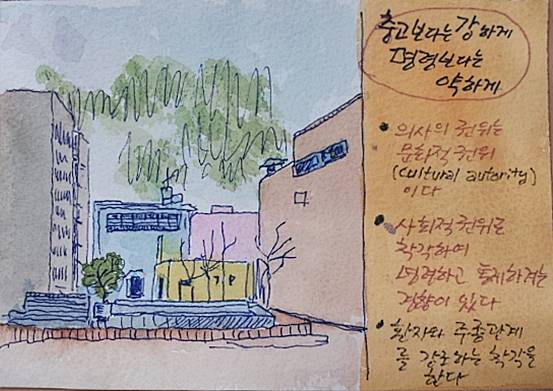 충고보다는 강하게
명령보다는
약하게
• 의사의 권위는
문화적 권위
(cultural autority)
이다
• 사회적 권위로
착각하여
명령하고 통제하려는
경향이 있다
• 환자와 주종관계
를 강조하는 착각을
한다